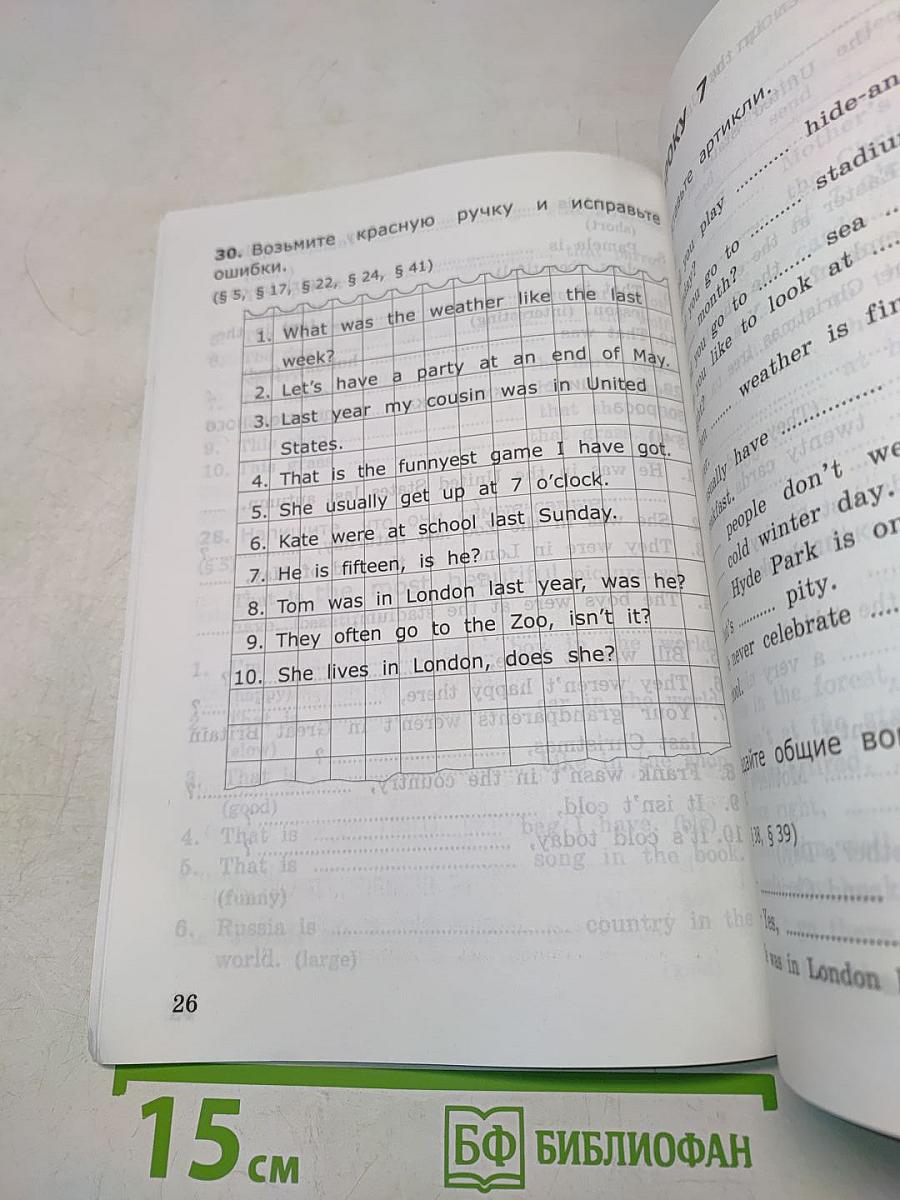 30. Возьмите красную ручку и исправьте
ошибки.
(§ 5, § 17, § 22, § 24, § 41)
1. What was the weather like the last
week?
2. Let's have a party at an end of May.
3. Last year my cousin was in United
States.
4. That is the funnyest game I have got.
5. She usually get up at 7 o'clock.
6. Kate were at school last Sunday.
7. He is fifteen, is he?
8. Tom was in London last year, was he?
9. They often go to the Zoo, isn't it?
10. She lives in London, does she?
(good)
4. That is
5. That is song in the book.
(funny)
6. Russia is country in the
world. (large)
26
7
артикли.
play hide-an
go to stadiu
month?
go to sea
like to look at
weather is fin
have
people don't we
cold winter day.
Hyde Park is on
pity.
never celebrate
общие
§ 39)
Yes,
was in London
15 см
БФ БИБЛИОФАН